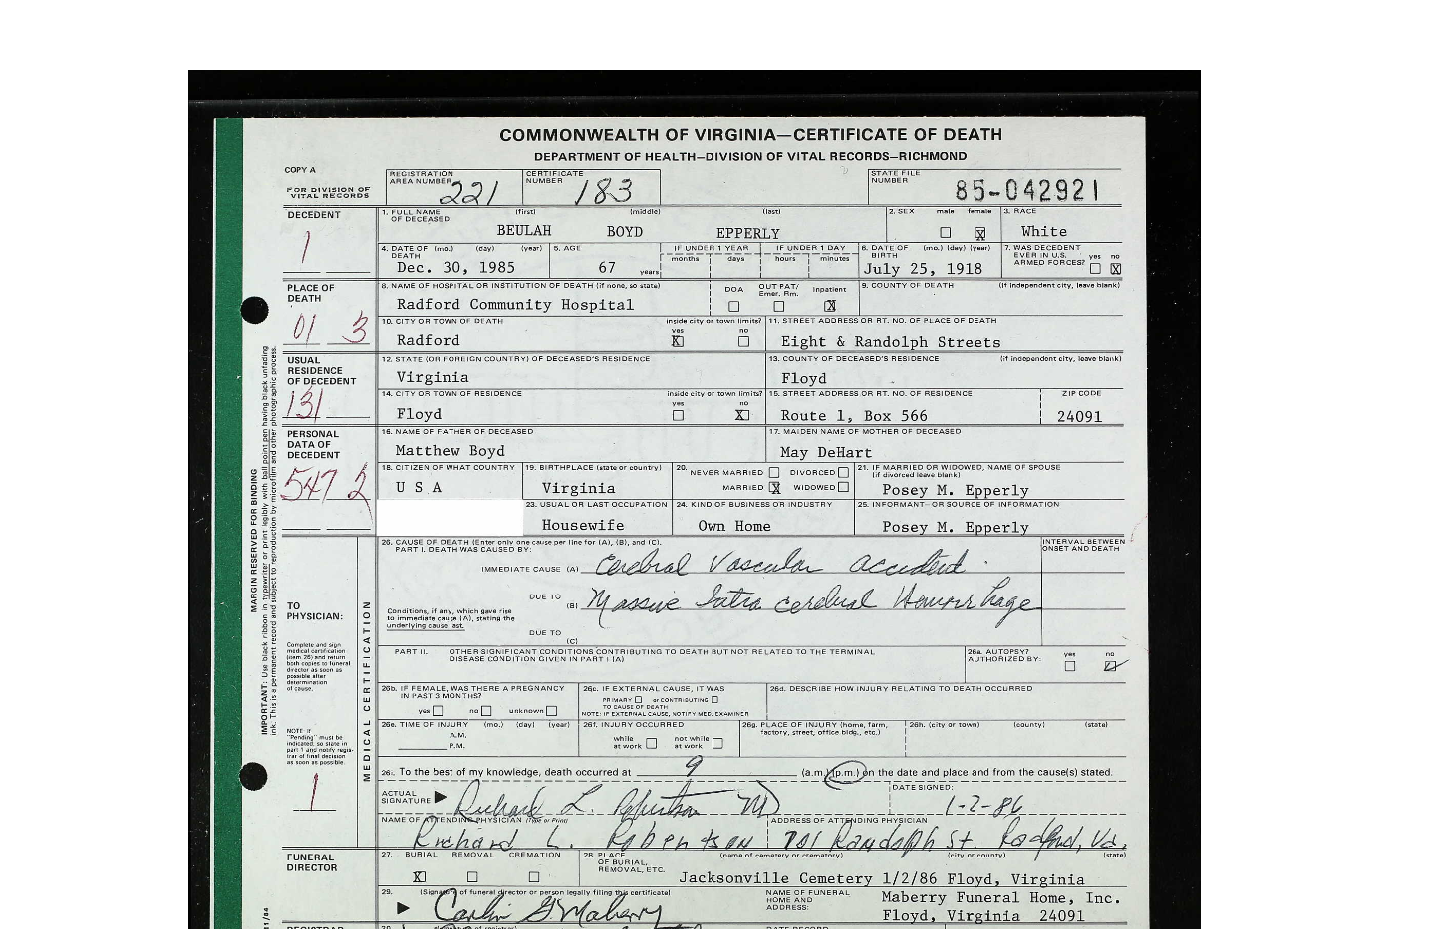 COMMONWEALTH OF VIRGINIA—CERTIFICATE OF DEATH
DEPARTMENT OF HEALTH—DIVISION OF VITAL RECORDS—RICHMOND
COPY A
FOR DIVISION OF VITAL RECORDS
REGISTRATION AREA NUMBER 221
CERTIFICATE NUMBER 183
STATE FILE NUMBER 85-042921
DECEDENT
1
1. FULL NAME OF DECEASED (first) (middle) (last)
BEULAH BOYD EPPERLY
2. SEX male female ☐ ☒
3. RACE
White
4. DATE OF DEATH (mo.) (day) (year)
Dec. 30, 1985
5. AGE
67 years
IF UNDER 1 YEAR months days
IF UNDER 1 DAY hours minutes
6. DATE OF BIRTH (mo.) (day) (year)
July 25, 1918
7. WAS DECEDENT EVER IN U.S. ARMED FORCES? yes no ☐ ☒
PLACE OF DEATH
01 3
8. NAME OF HOSPITAL OR INSTITUTION OF DEATH (if none, so state)
Radford Community Hospital
DOA ☐ OUT PAT/ Emer. Rm. ☐ Inpatient ☒
9. COUNTY OF DEATH (if independent city, leave blank)
10. CITY OR TOWN OF DEATH inside city or town limits? yes no
Radford ☒ ☐
11. STREET ADDRESS OR RT. NO. OF PLACE OF DEATH
Eight & Randolph Streets
USUAL RESIDENCE OF DECEDENT
131
12. STATE (OR FOREIGN COUNTRY) OF DECEASED'S RESIDENCE
Virginia
13. COUNTY OF DECEASED'S RESIDENCE (if independent city, leave blank)
Floyd
14. CITY OR TOWN OF RESIDENCE inside city or town limits? yes no
Floyd ☐ ☒
15. STREET ADDRESS OR RT. NO. OF RESIDENCE
Route 1, Box 566
ZIP CODE
24091
PERSONAL DATA OF DECEDENT
547 2
16. NAME OF FATHER OF DECEASED
Matthew Boyd
17. MAIDEN NAME OF MOTHER OF DECEASED
May DeHart
18. CITIZEN OF WHAT COUNTRY
U S A
19. BIRTHPLACE (state or country)
Virginia
20. NEVER MARRIED ☐ DIVORCED ☐
MARRIED ☒ WIDOWED ☐
21. IF MARRIED OR WIDOWED, NAME OF SPOUSE (if divorced leave blank)
Posey M. Epperly
23. USUAL OR LAST OCCUPATION
Housewife
24. KIND OF BUSINESS OR INDUSTRY
Own Home
25. INFORMANT—OR SOURCE OF INFORMATION
Posey M. Epperly
MARGIN RESERVED FOR BINDING
IMPORTANT: Use black ribbon in typewriter or print legibly with ball point pen having black unfading
ink. This is a permanent record and subject to reproduction by microfilm and other photographic process.
TO PHYSICIAN:
Complete and sign
medical certification
(item 26) and return
both copies to funeral
director as soon as
possible after
determination
of cause.
NOTE: If
"Pending" must be
indicated, so state in
part 1 and notify regis-
trar of final decision
as soon as possible.
1
MEDICAL CERTIFICATION
26. CAUSE OF DEATH (Enter only one cause per line for (A), (B), and (C).
PART I. DEATH WAS CAUSED BY:
INTERVAL BETWEEN ONSET AND DEATH
IMMEDIATE CAUSE (A) Cerebral Vascular accident
DUE TO (B) Massive Intra cerebral Hemorrhage
Conditions, if any, which gave rise
to immediate cause (A), stating the
underlying cause last.
DUE TO (C)
PART II. OTHER SIGNIFICANT CONDITIONS CONTRIBUTING TO DEATH BUT NOT RELATED TO THE TERMINAL
DISEASE CONDITION GIVEN IN PART I (A)
26a. AUTOPSY? AUTHORIZED BY: yes no ☐ ☑
26b. IF FEMALE, WAS THERE A PREGNANCY IN PAST 3 MONTHS?
yes ☐ no ☐ unknown ☐
26c. IF EXTERNAL CAUSE, IT WAS
PRIMARY ☐ or CONTRIBUTING ☐
TO CAUSE OF DEATH
NOTE: IF EXTERNAL CAUSE, NOTIFY MED. EXAMINER
26d. DESCRIBE HOW INJURY RELATING TO DEATH OCCURRED
26e. TIME OF INJURY (mo.) (day) (year)
A.M.
P.M.
26f. INJURY OCCURRED
while at work ☐ not while at work ☐
26g. PLACE OF INJURY (home, farm, factory, street, office bldg., etc.)
26h. (city or town) (county) (state)
26i. To the best of my knowledge, death occurred at 9 (a.m.) (p.m.) on the date and place and from the cause(s) stated.
ACTUAL SIGNATURE ▶ Richard L. Robertson MD
DATE SIGNED:
1-2-86
NAME OF ATTENDING PHYSICIAN (Type or Print)
ADDRESS OF ATTENDING PHYSICIAN
Richard L. Robertson 701 Randolph St Radford, Va.
FUNERAL DIRECTOR
27. BURIAL REMOVAL CREMATION
☒ ☐ ☐
28. PLACE OF BURIAL, REMOVAL, ETC. (name of cemetery or crematory) (city or county) (state)
Jacksonville Cemetery 1/2/86 Floyd, Virginia
29. (Signature of funeral director or person legally filing this certificate)
▶ Carlin G. Maberry
NAME OF FUNERAL HOME AND ADDRESS:
Maberry Funeral Home, Inc.
Floyd, Virginia 24091